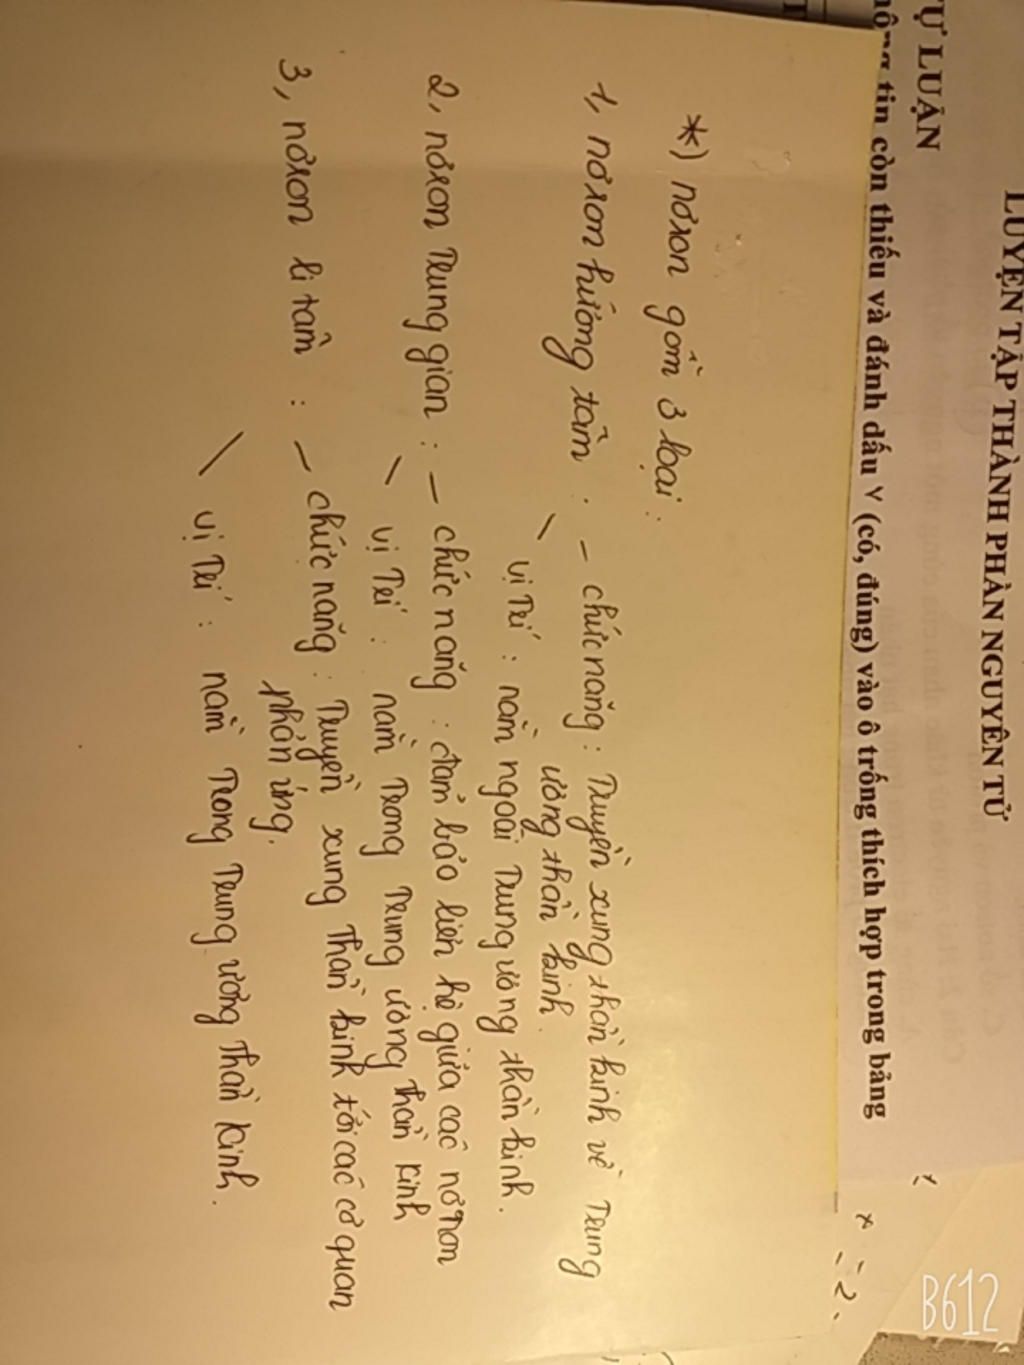 LUYỆN TẬP THÀNH PHẦN NGUYÊN TỬ
TỰ LUẬN
tin còn thiếu và đánh dấu √ (có, đúng) vào ô trống thích hợp trong bảng
*) nơron gồm 3 loại :
1, nơron hướng tâm : - chức năng : Truyền xung thần kinh về Trung
ương thần kinh.
- vị Trí : nằm ngoài Trung ương thần kinh.
2, nơron Trung gian : - chức năng : đảm bảo liên hệ giữa các nơron
- vị Trí : nằm Trong Trung ương Thần kinh
3, nơron li tâm : - chức năng : Truyền xung Thần kinh tới các cơ quan
phản ứng.
- vị Trí : nằm Trong Trung ương Thần Kinh.
B612